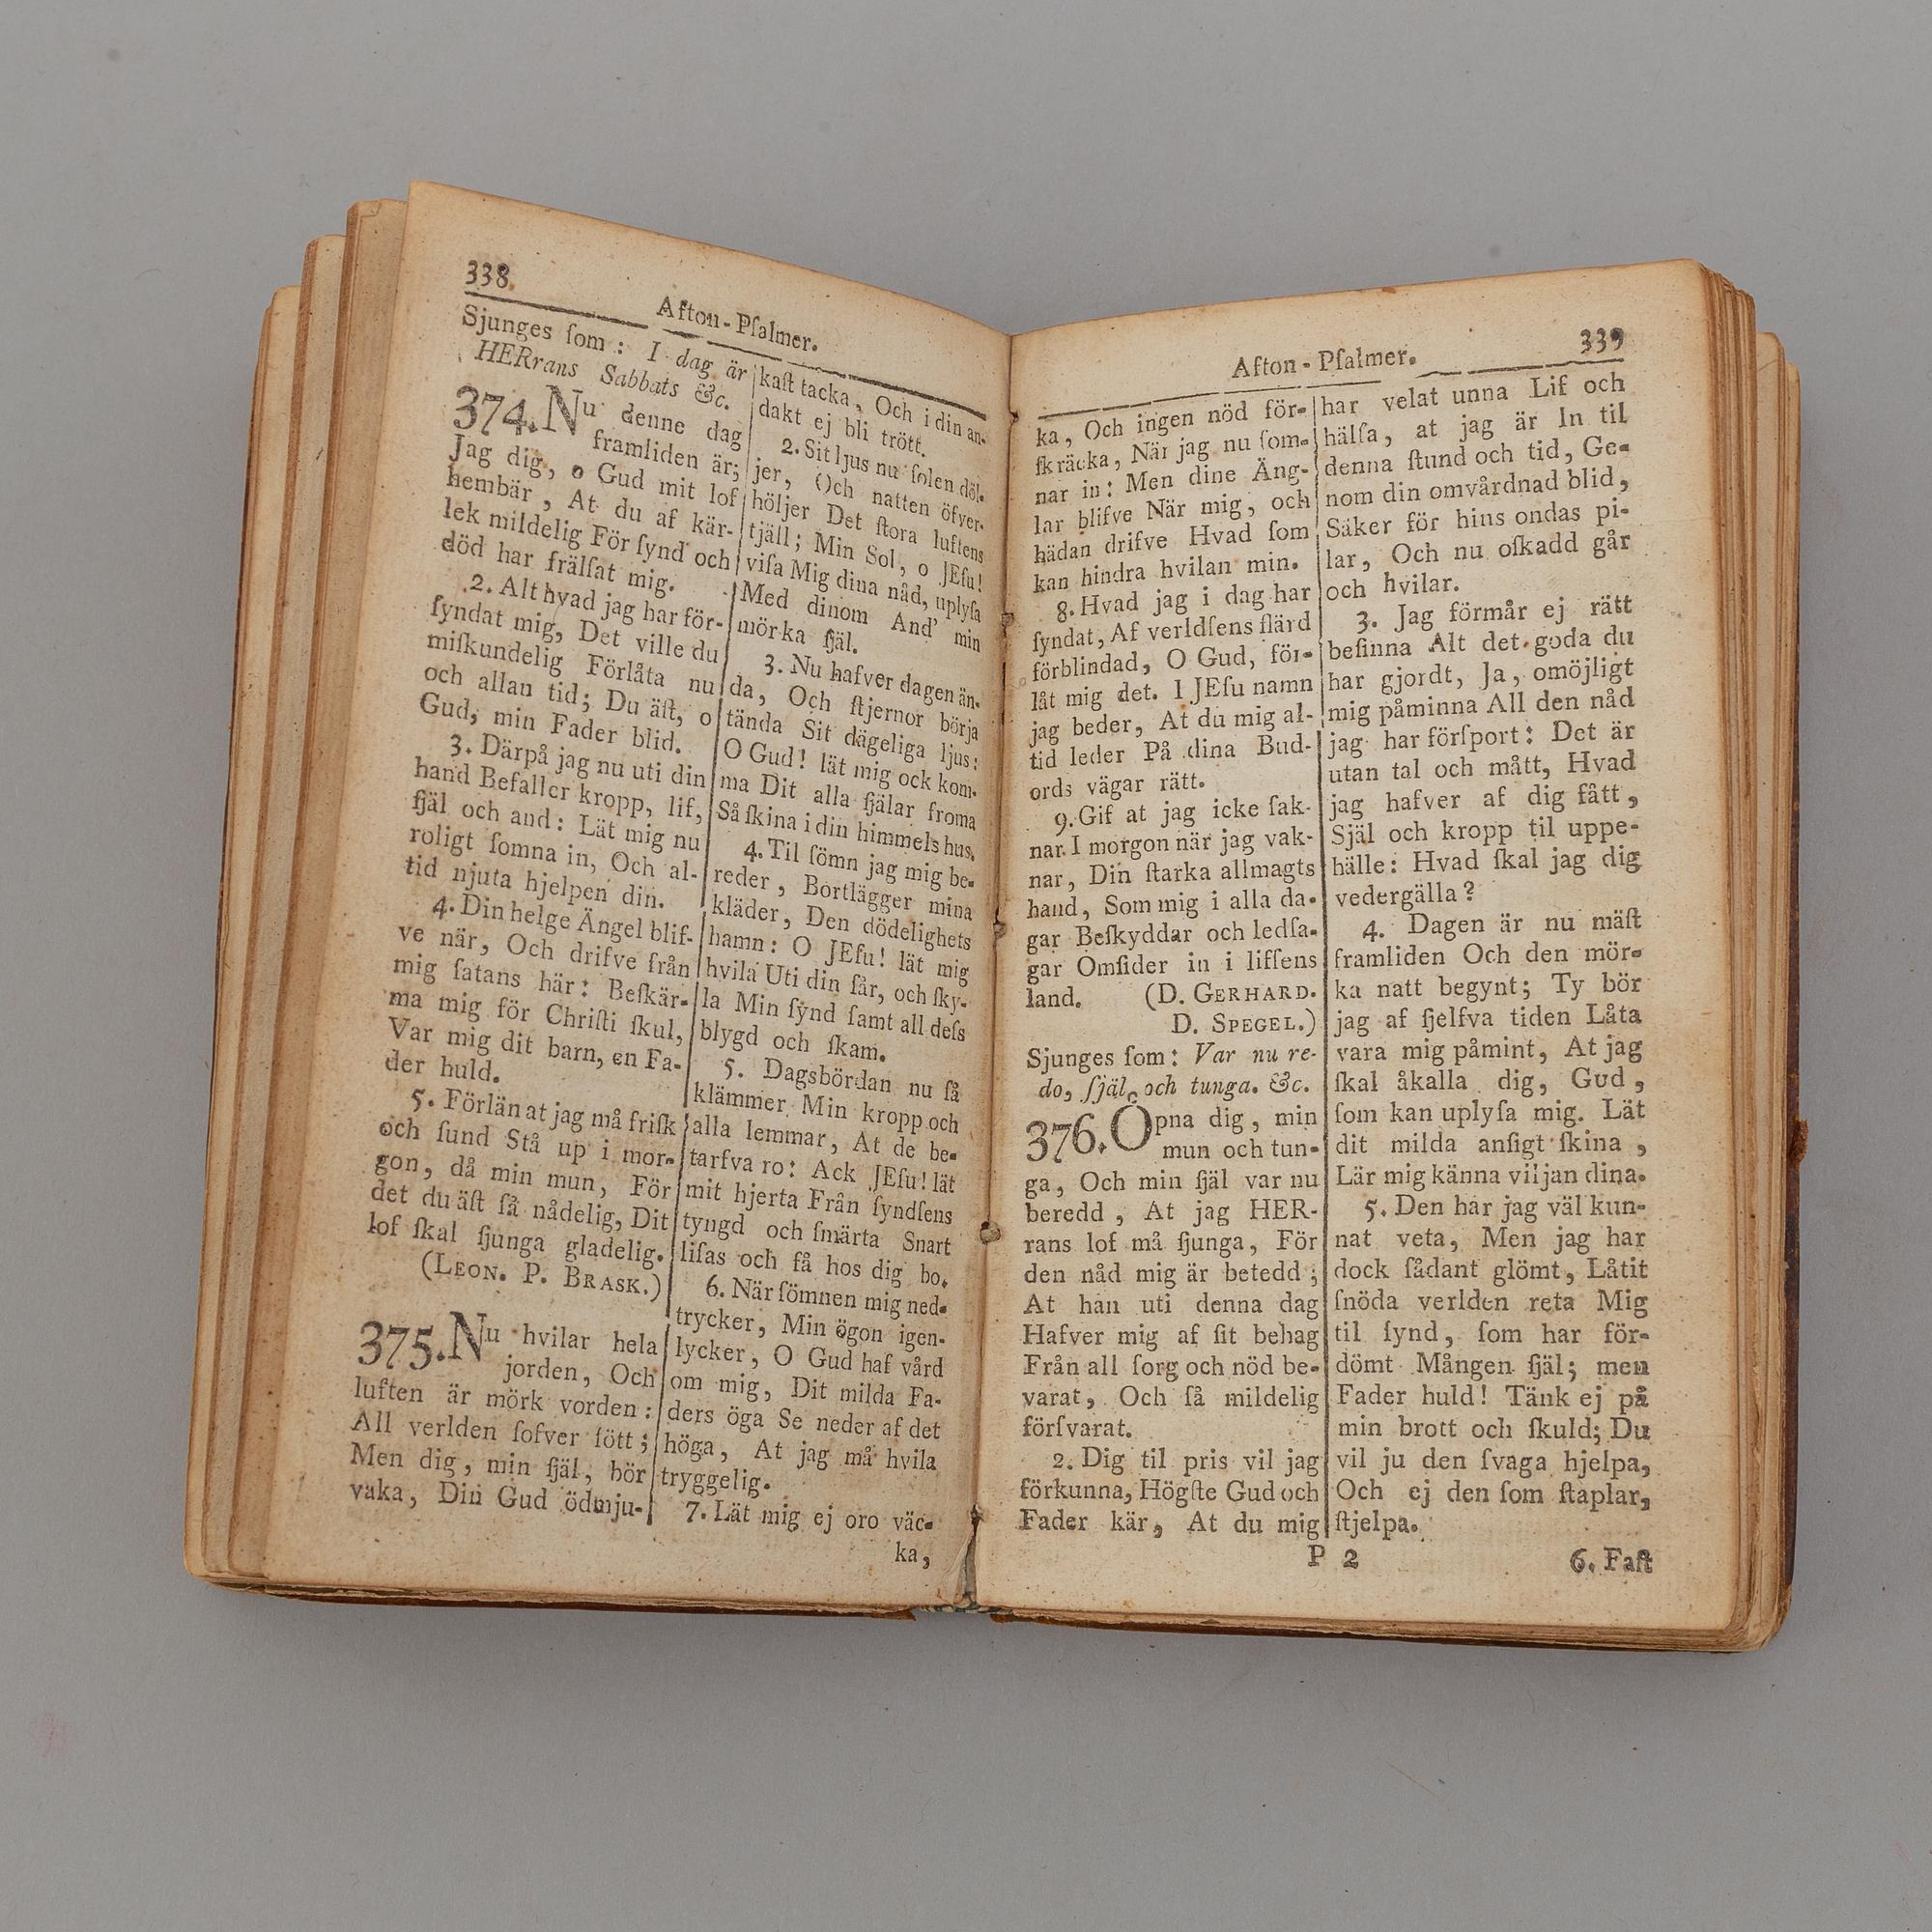 338
Afton-Pſalmer.
Sjunges ſom: I dag är
HERrans Sabbats &c.
374. Nu denne dag
framliden är;
Jag dig, o Gud mit lof
hembär, At du af kär-
lek mildelig För ſynd och
död har frälſat mig.
2. Alt hvad jag har för-
ſyndat mig, Det ville du
miſkundelig Förlåta nu
och allan tid; Du äſt, o
Gud, min Fader blid.
3. Därpå jag nu uti din
hand Befaller kropp, lif,
ſjäl och and: Lät mig nu
roligt ſomna in, Och al-
tid njuta hjelpen din.
4. Din helge Ängel blif-
ve när, Och drifve från
mig ſatans här: Beſkär-
ma mig för Chriſti ſkul,
Var mig dit barn, en Fa-
der huld.
5. Förlän at jag må friſk
och ſund Stå up i mor-
gon, då min mun, För
det du äſt ſå nådelig, Dit
lof ſkal ſjunga gladelig.
(LEON. P. BRASK.)
375. Nu hvilar hela
jorden, Och
luften är mörk vorden:
All verlden ſofver ſött;
Men dig, min ſjäl, bör
vaka, Din Gud ödmju-
kaſt tacka, Och i din an-
dakt ej bli trött.
2. Sit ljus nu ſolen döl-
jer, Och natten öfver-
höljer Det ſtora luftens
tjäll; Min Sol, o JEſu!
viſa Mig dina nåd, uplyſa
Med dinom And' min
mörka ſjäl.
3. Nu hafver dagen än-
da, Och ſtjernor börja
tända Sit dägeliga ljus:
O Gud! lät mig ock kom-
ma Dit alla ſjälar froma
Så ſkina i din himmels hus.
4. Til ſömn jag mig be-
reder, Bortlägger mina
kläder, Den dödelighets
hamn: O JEſu! lät mig
hvila Uti din ſår, och ſky-
la Min ſynd ſamt all deſs
blygd och ſkam.
5. Dagsbördan nu ſå
klämmer Min kropp och
alla lemmar, At de be-
tarfva ro: Ack JEſu! lät
mit hjerta Från ſyndſens
tyngd och ſmärta Snart
liſas och få hos dig bo.
6. När ſömnen mig ned-
trycker, Min ögon igen-
lycker, O Gud haf vård
om mig, Dit milda Fa-
ders öga Se neder af det
höga, At jag må hvila
tryggelig.
7. Lät mig ej oro väc-
ka,
Afton-Pſalmer.
339
ka, Och ingen nöd för-
ſkräcka, När jag nu ſom-
nar in: Men dine Äng-
lar blifve När mig, och
hädan drifve Hvad ſom
kan hindra hvilan min.
8. Hvad jag i dag har
ſyndat, Af verldſens flärd
förblindad, O Gud, för-
låt mig det. I JEſu namn
jag beder, At du mig al-
tid leder På dina Bud-
ords vägar rätt.
9. Gif at jag icke ſak-
nar. I morgon när jag vak-
nar, Din ſtarka allmagts
hand, Som mig i alla da-
gar Beſkyddar och ledſa-
gar Omſider in i liffens
land. (D. GERHARD.
D. SPEGEL.)
Sjunges ſom: Var nu re-
do, ſjäl och tunga. &c.
376. Opna dig, min
mun och tun-
ga, Och min ſjäl var nu
beredd, At jag HER-
rans lof må ſjunga, För
den nåd mig är betedd;
At han uti denna dag
Hafver mig af ſit behag
Från all ſorg och nöd be-
varat, Och ſå mildelig
förſvarat.
2. Dig til pris vil jag
förkunna, Högſte Gud och
Fader kär, At du mig
har velat unna Lif och
hälſa, at jag är In til
denna ſtund och tid, Ge-
nom din omvårdnad blid,
Säker för hins ondas pi-
lar, Och nu oſkadd går
och hvilar.
3. Jag förmår ej rätt
beſinna Alt det goda du
har gjordt, Ja, omöjligt
mig påminna All den nåd
jag har förſport: Det är
utan tal och mått, Hvad
jag hafver af dig fått,
Själ och kropp til uppe-
hälle: Hvad ſkal jag dig
vedergälla?
4. Dagen är nu mäſt
framliden Och den mör-
ka natt begynt; Ty bör
jag af ſjelfva tiden Låta
vara mig påmint, At jag
ſkal åkalla dig, Gud,
ſom kan uplyſa mig. Lät
dit milda anſigt ſkina,
Lär mig känna viljan dina.
5. Den har jag väl kun-
nat veta, Men jag har
dock ſådant glömt, Låtit
ſnöda verlden reta Mig
til ſynd, ſom har för-
dömt Mången ſjäl; men
Fader huld! Tänk ej på
min brott och ſkuld; Du
vil ju den ſvaga hjelpa,
Och ej den ſom ſtaplar,
ſtjelpa.
P 2
6. Faſt